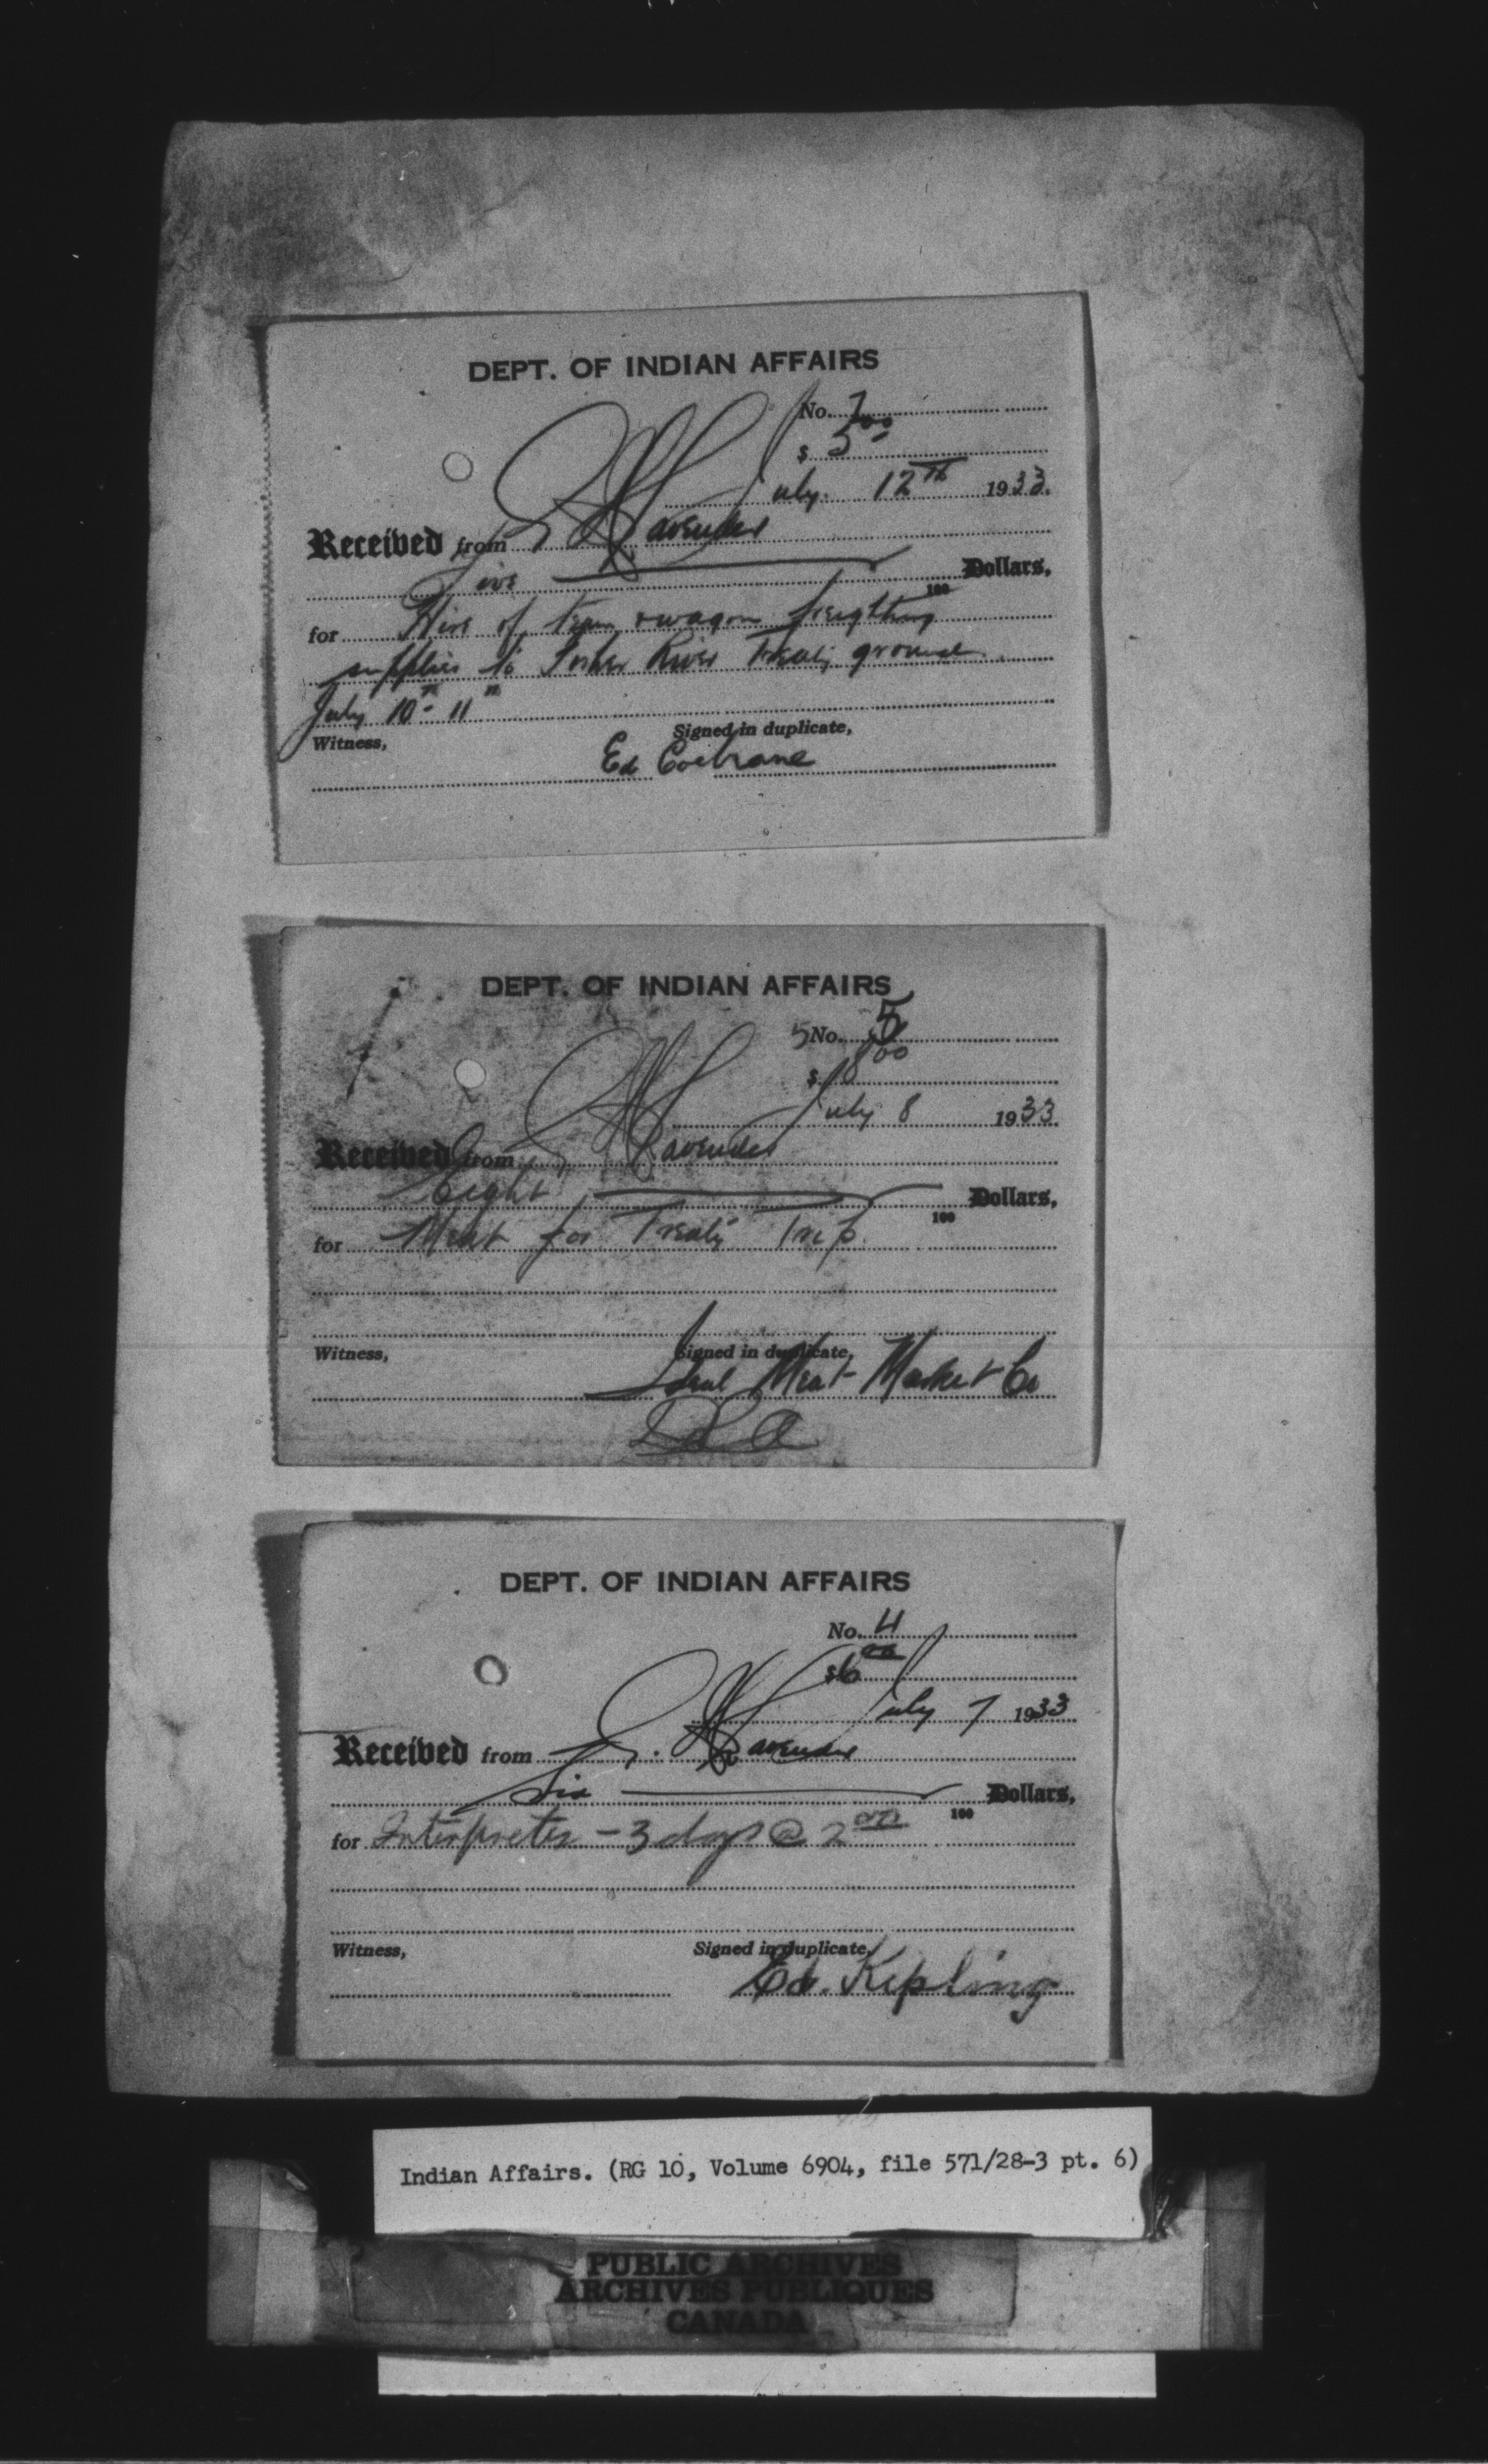 DEPT. OF INDIAN AFFAIRS
No. 7
$ 5 00
July 12th 1933.
Received from Lavender
Five Dollars,
100
for Hire of team & wagon freighting
supplies to Fisher River Treaty grounds
July 10th 11th
Witness, Signed in duplicate,
Ed Cochrane
DEPT. OF INDIAN AFFAIRS
5 No. 5
$ 8 00
July 8 1933
Received from Lavender
Eight Dollars,
100
for Meat for Treaty Trip.
Witness, Signed in duplicate,
Ideal Meat Market Co
DEPT. OF INDIAN AFFAIRS
No. 4
$ 6 00
July 7 1933
Received from Lavender
Six Dollars,
100
for Interpreter - 3 days @ 2 00
Witness, Signed in duplicate,
Ed. Kipling
Indian Affairs. (RG 10, Volume 6904, file 571/28-3 pt. 6)
PUBLIC ARCHIVES
ARCHIVES PUBLIQUES
CANADA